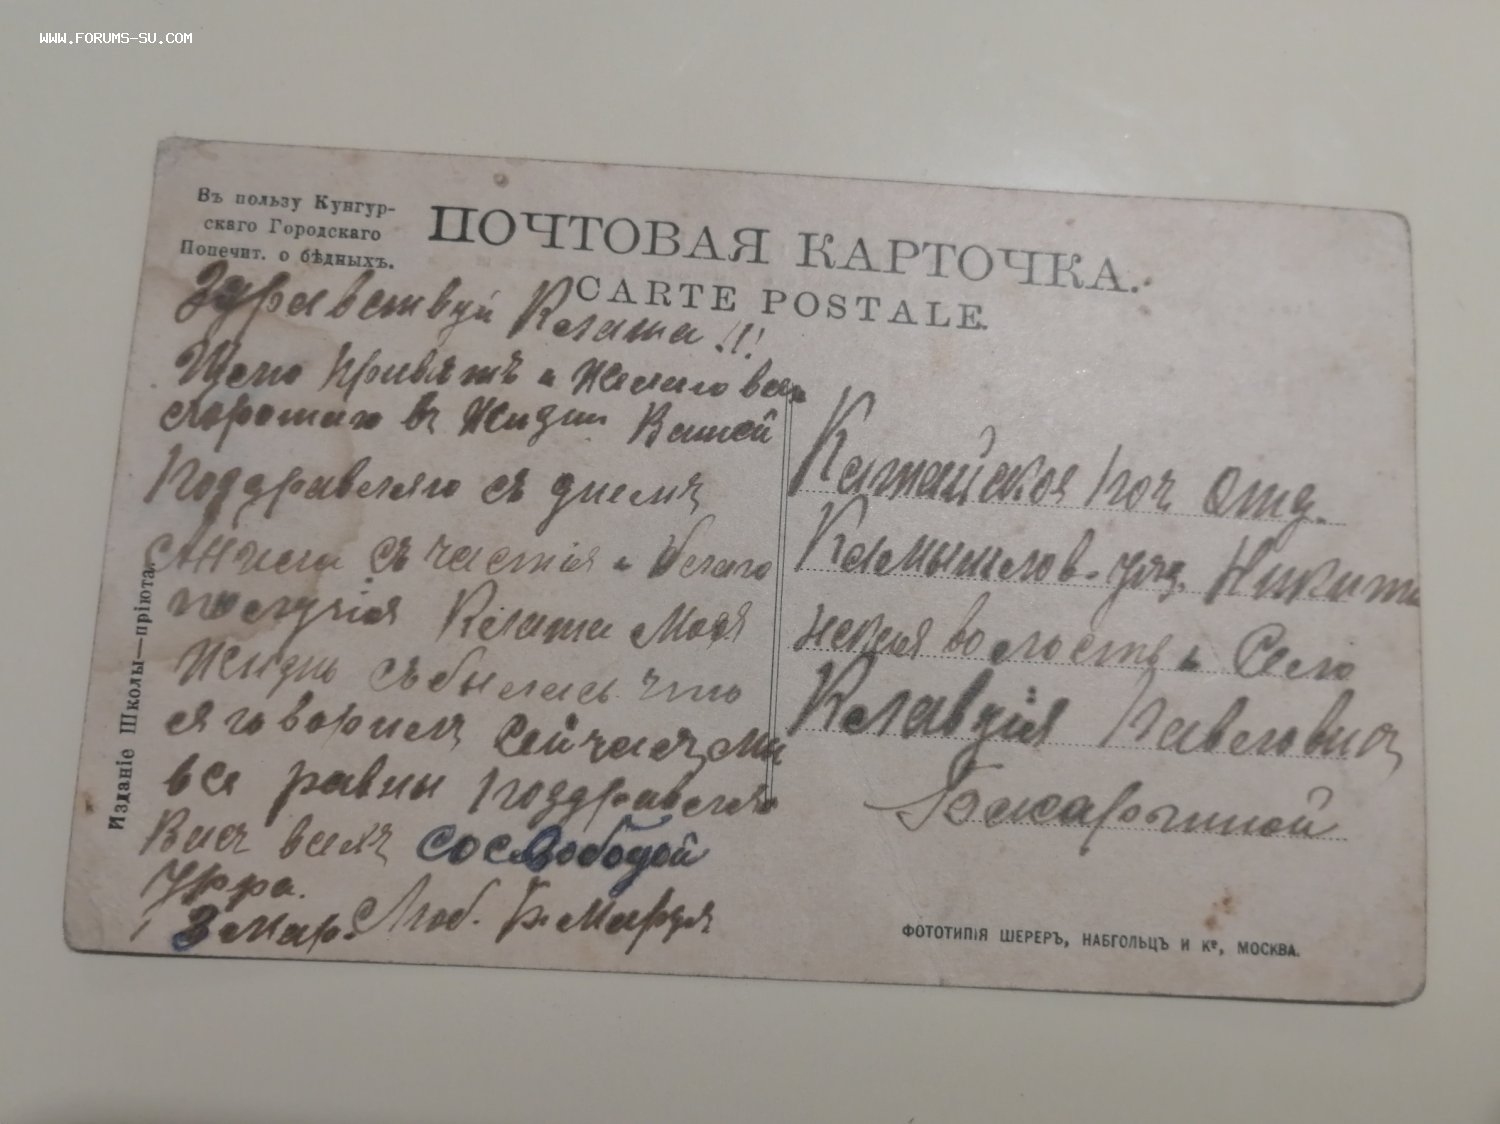 WWW.FORUMS-SU.COM
Въ пользу Кунгур-
скаго Городскаго
Попечит. о бѣдныхъ.
ПОЧТОВАЯ КАРТОЧКА.
CARTE POSTALE.
Здравствуй Клаша !!
Шлю Привѣтъ и Желаю все
хорошаго въ Жизни Вашей
Поздравляю съ днемъ
Ангела съчастія и благо
получія Клаша Моя
Жизнь събылась что
я говорилъ Сейчасъ ми
все равны поздравляю
Васъ всехъ сосвободой
Урра.
3 мар. Люб. Б. Марья
Изданіе Школы—пріюта.
Катайское поч Отд.
Камышлов. уѣз. Никит
ская волость Село
Клавдія Павловна
ФОТОТИПІЯ ШЕРЕРЪ, НАБГОЛЬЦЪ И Кº, МОСКВА.